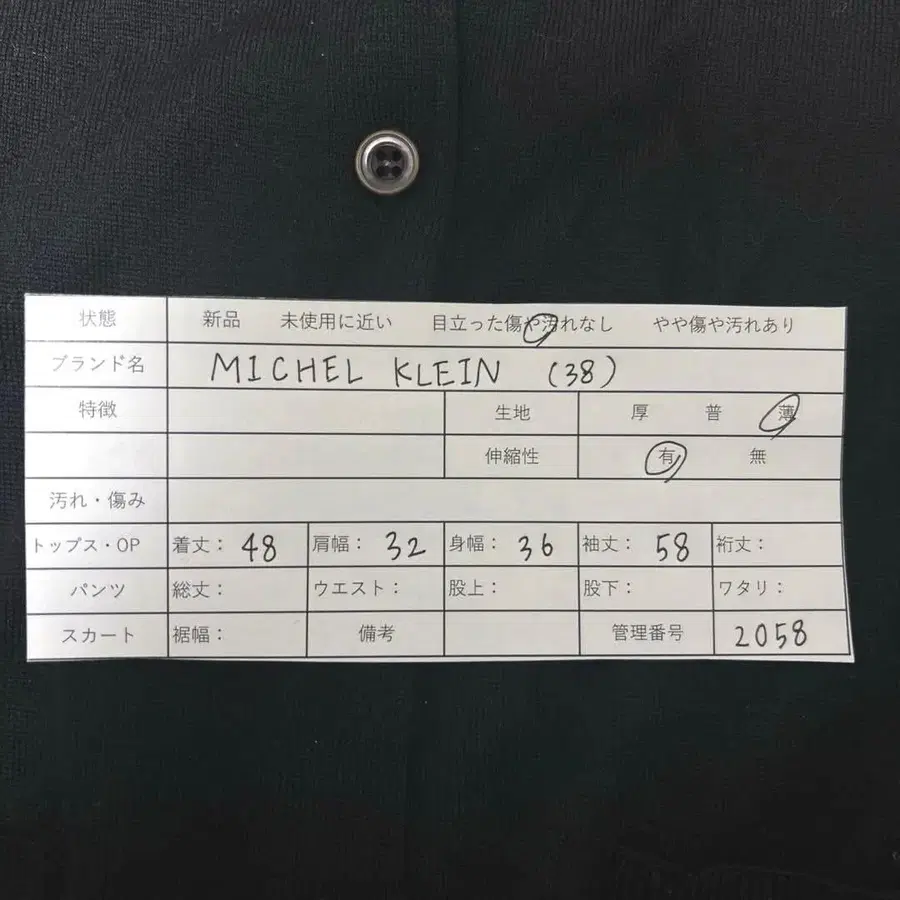 状態 新品 未使用に近い 目立った傷や汚れなし やや傷や汚れあり
ブランド名 MICHEL KLEIN (38)
特徴 生地 厚 普 薄
伸縮性 有 無
汚れ・傷み
トップス・OP 着丈: 48 肩幅: 32 身幅: 36 袖丈: 58 裄丈:
パンツ 総丈: ウエスト: 股上: 股下: ワタリ:
スカート 裾幅: 備考 管理番号 2058